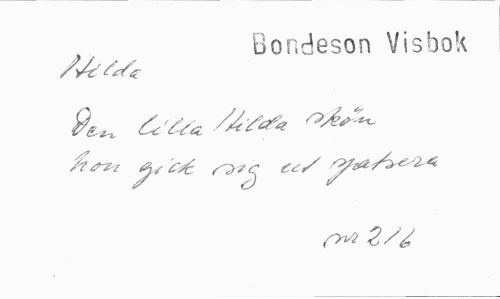 Bondeson Visbok
Hilda
Den lilla Hilda skön
hon gick sig ut spatsera
nr 216